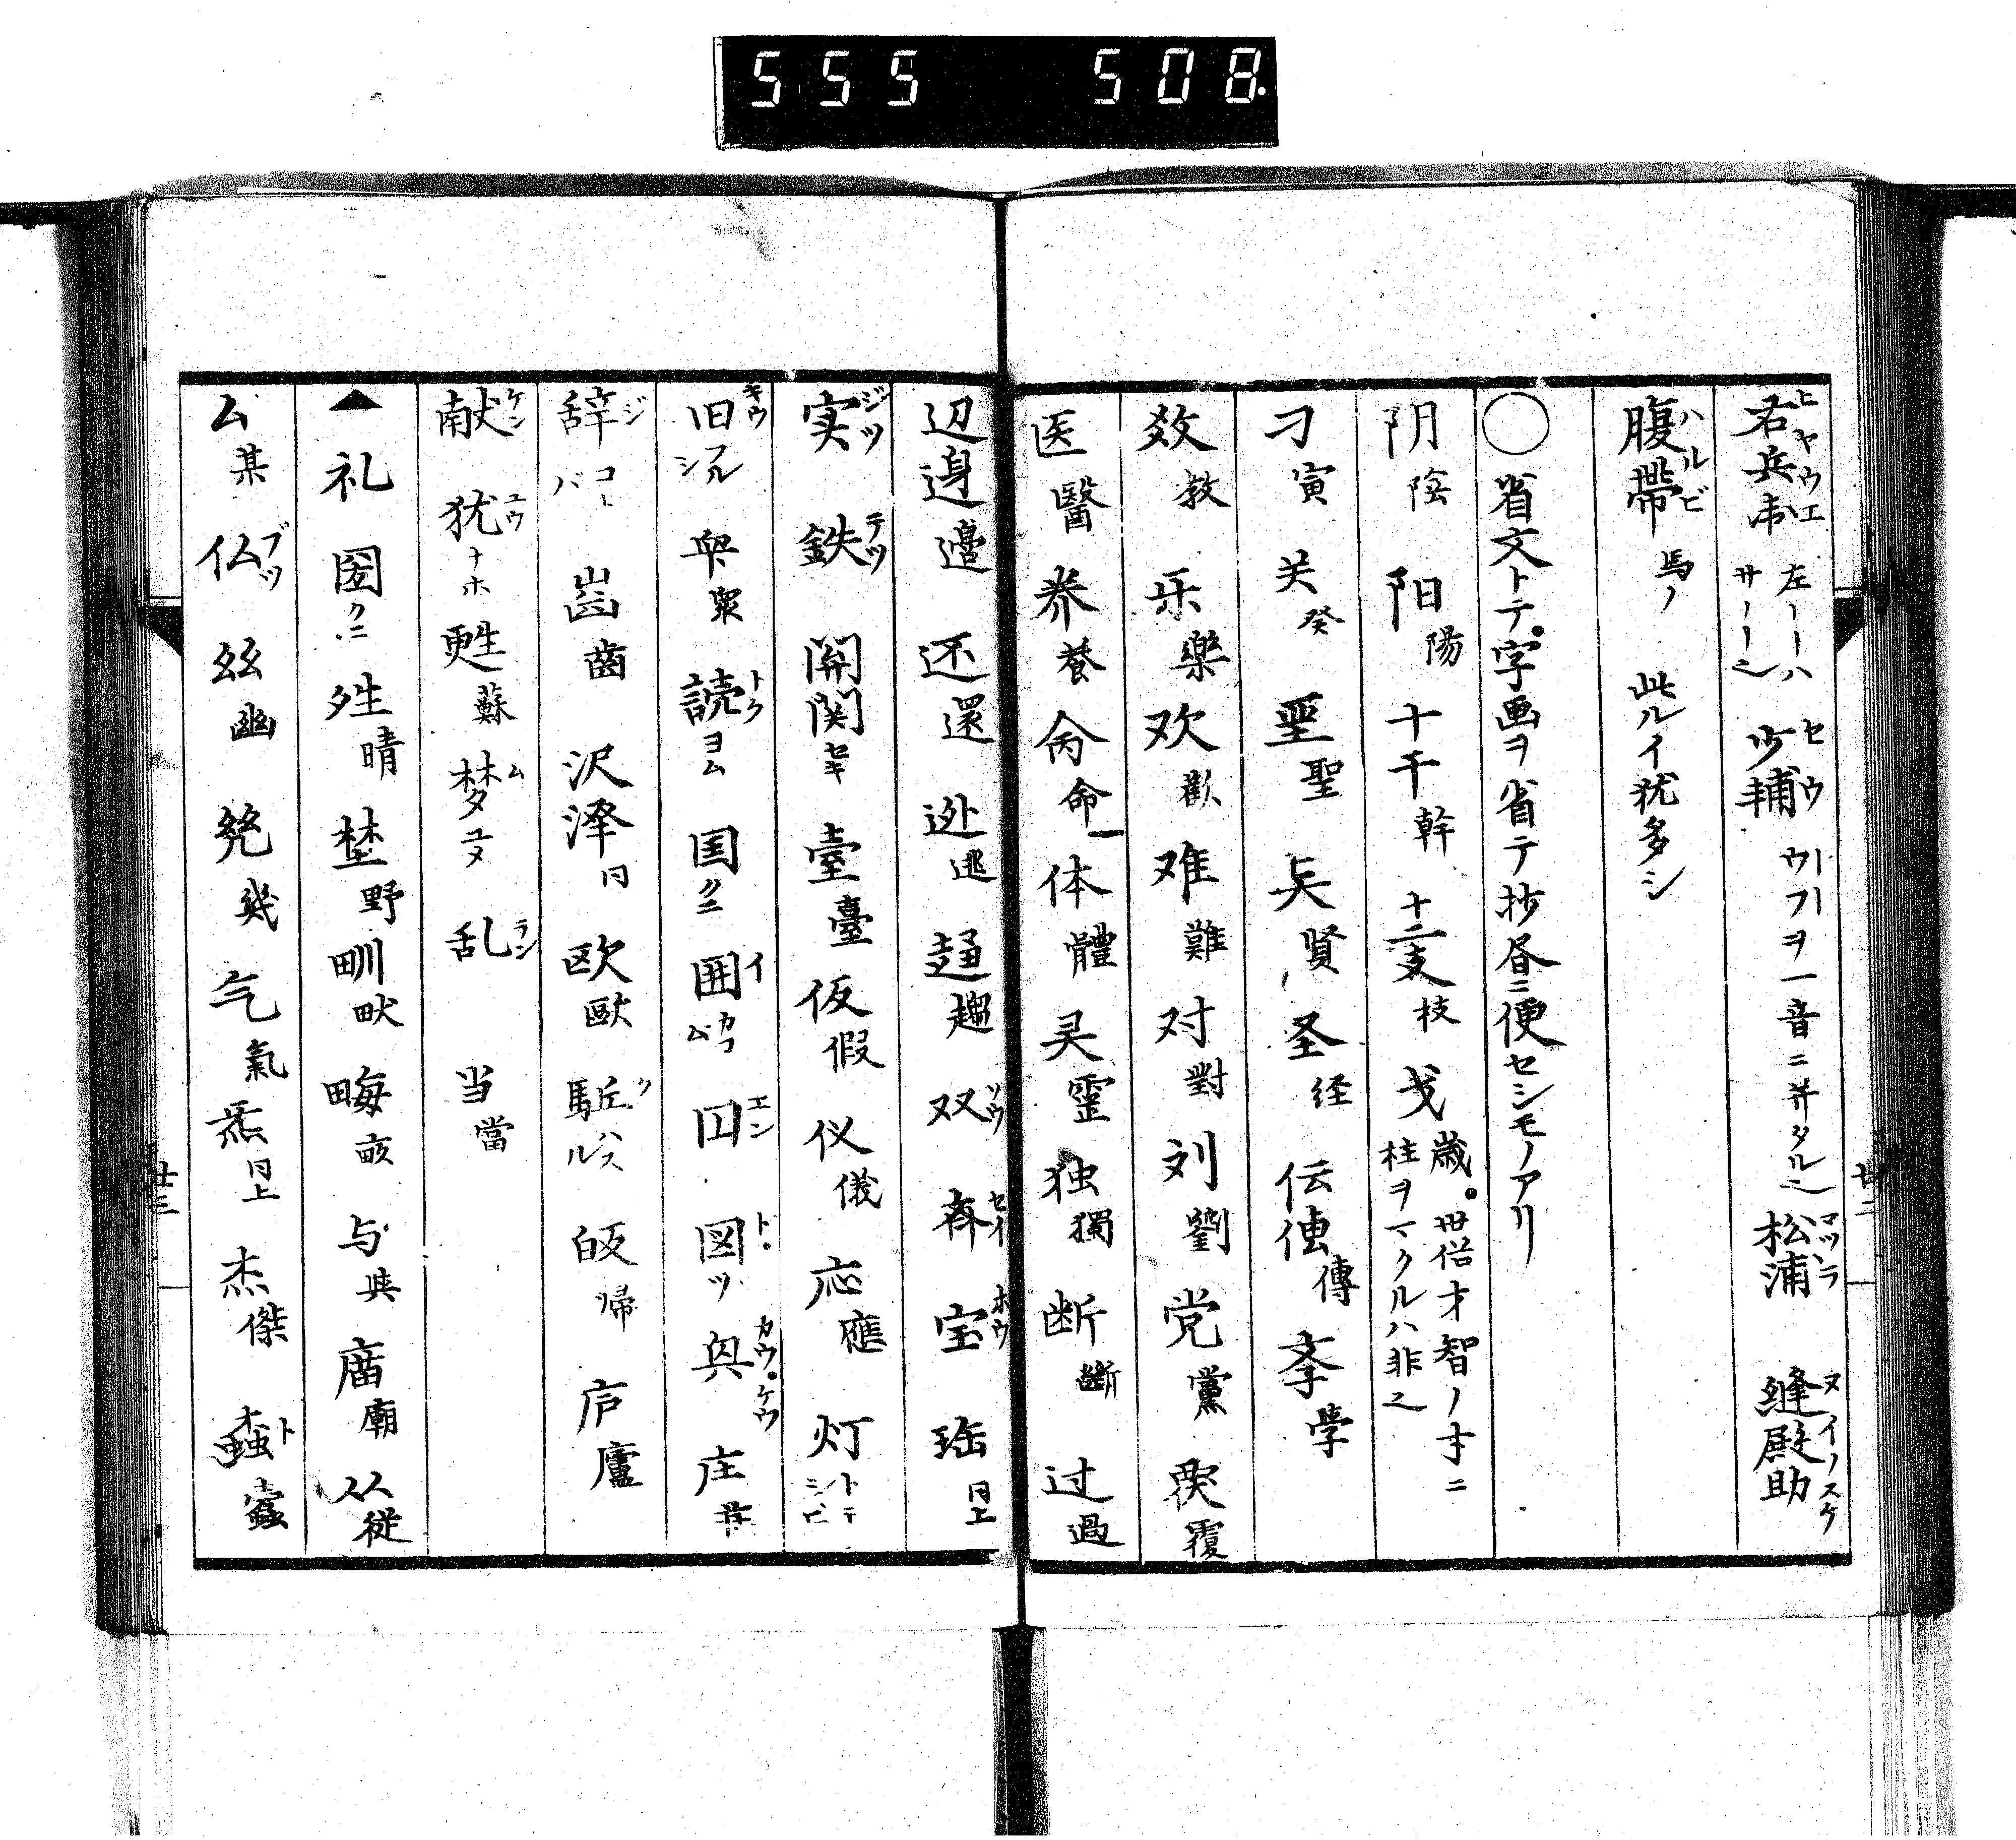 555 508.
右兵衛 ヒヤウエ 左ーーハサーーー也 少輔 セウ ウトフトヲ一音ニ并タル也 松浦 マツラ 縫殿助 ヌイノスケ
腹帯 ハルビ 馬ノ 此ルイ犹多シ
〇省文トテ字画ヲ省テ抄昼ニ便セシモノアリ
阴 陰 阳 陽 十干 幹 十二支 枝 戈 歳。世俗才智ノ才ニ柱ヲマクルハ非也
刁 寅 关 癸 聖 賢 圣 経 伝 傳 斈 學
教 乐 樂 欢 歡 难 難 对 對 刘 劉 党 黨 覆
医 醫 养 養 命 体 體 灵 靈 独 獨 断 斷 过 過
辺 邊 还 還 迯 逃 趨 双 ソウ 斉 セイ 宝 ホウ 珤 同上
実 ジツ 鉄 テツ 関 セキ 臺 仮 假 仪 儀 応 應 灯 トテ
旧 キウ フルシ 衆 読 トク ヨム 国 クニ 囲 イ カコム 図 ト 庄
辞 ジ コトバ 歯 齒 沢 泽 同 欧 歐 駈 ク ハスル 皈 帰 庐 廬
献 ケン 犹 ユウ ナホ 甦 蘇 梦 ム ユメ 乱 ラン 当 當
▲礼 圀 クニ 夝 晴 埜 野 甽 畎 畮 与 庿 廟 从 従
厶 某 仏 ブツ 幽 幾 气 氣 炁 同上 杰 傑 蠧 ト 蠹